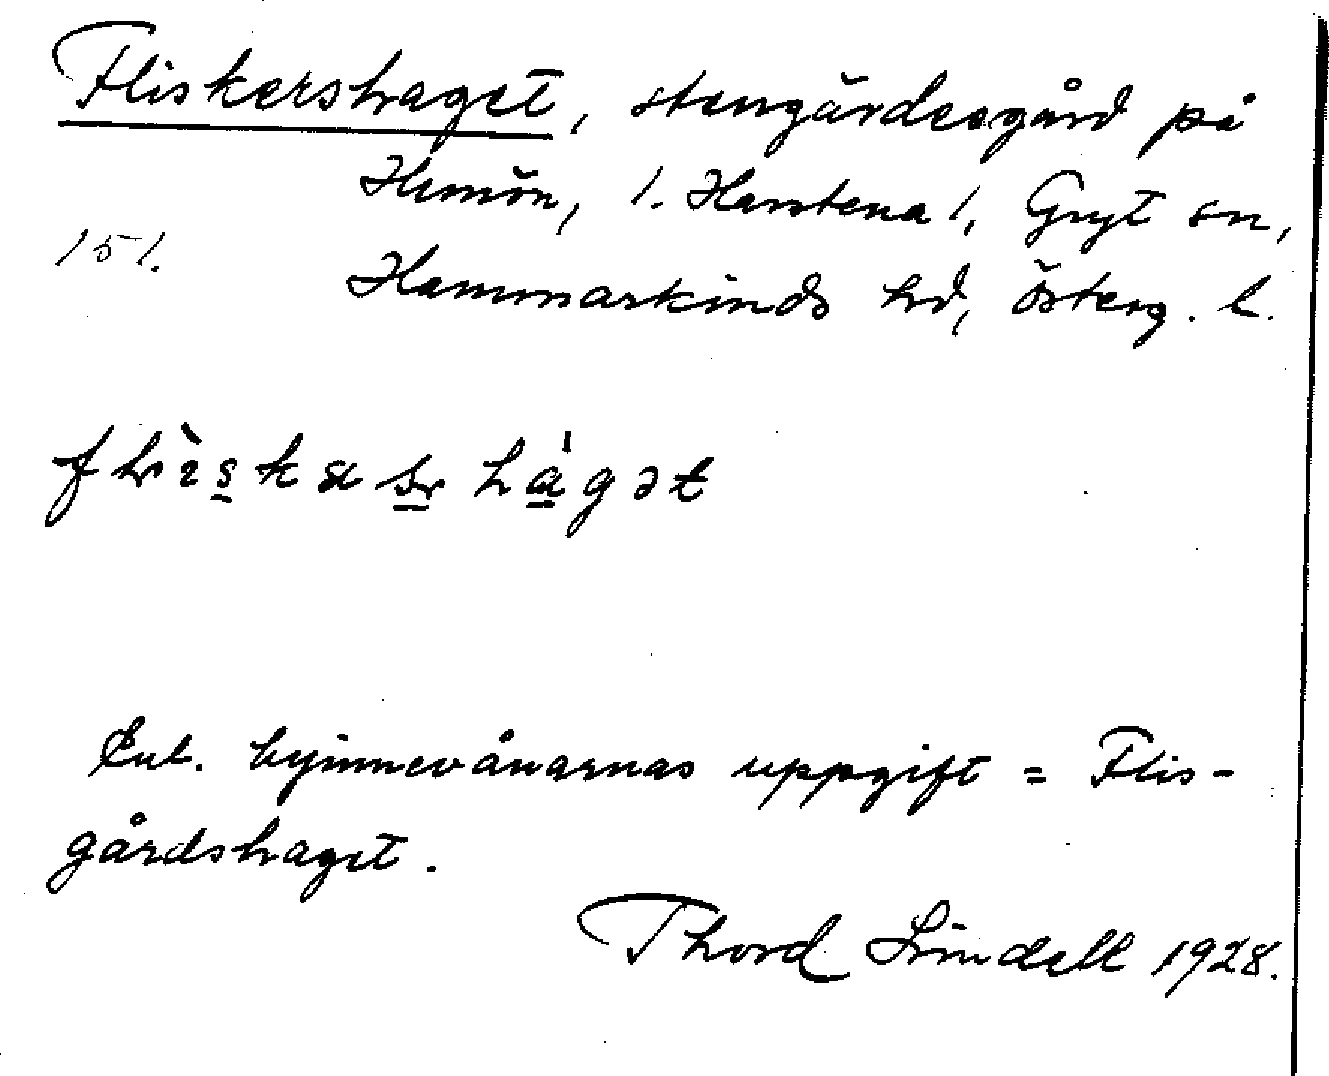 Fliskershaget, stengärdesgård på
Humön, /. Harstena /, Gryt sn,
151.
Hammarkinds hd, Österg. l.
Enl. byinnevånarnas uppgift = Flis-
gårdshaget.
Thord Lindell 1928.